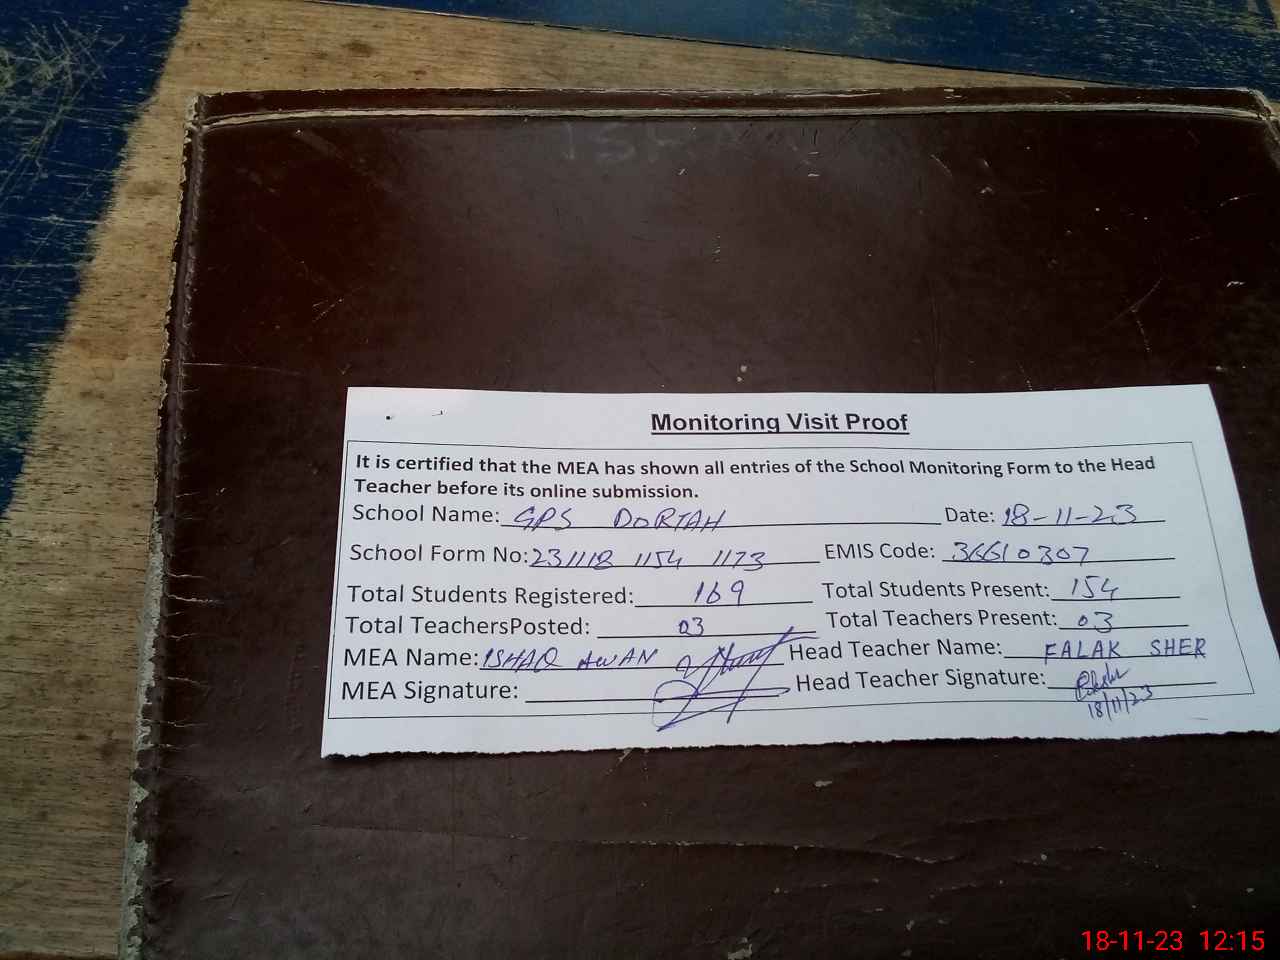 Monitoring Visit Proof
It is certified that the MEA has shown all entries of the School Monitoring Form to the Head
Teacher before its online submission.
School Name: GPS DORTAH Date: 18-11-23
School Form No: 231118 1154 1173 EMIS Code: 36610307
Total Students Registered: 169 Total Students Present: 154
Total TeachersPosted: 03 Total Teachers Present: 03
MEA Name: ISHAQ AWAN Head Teacher Name: FALAK SHER
MEA Signature: Head Teacher Signature:
18/11/23
18-11-23 12:15